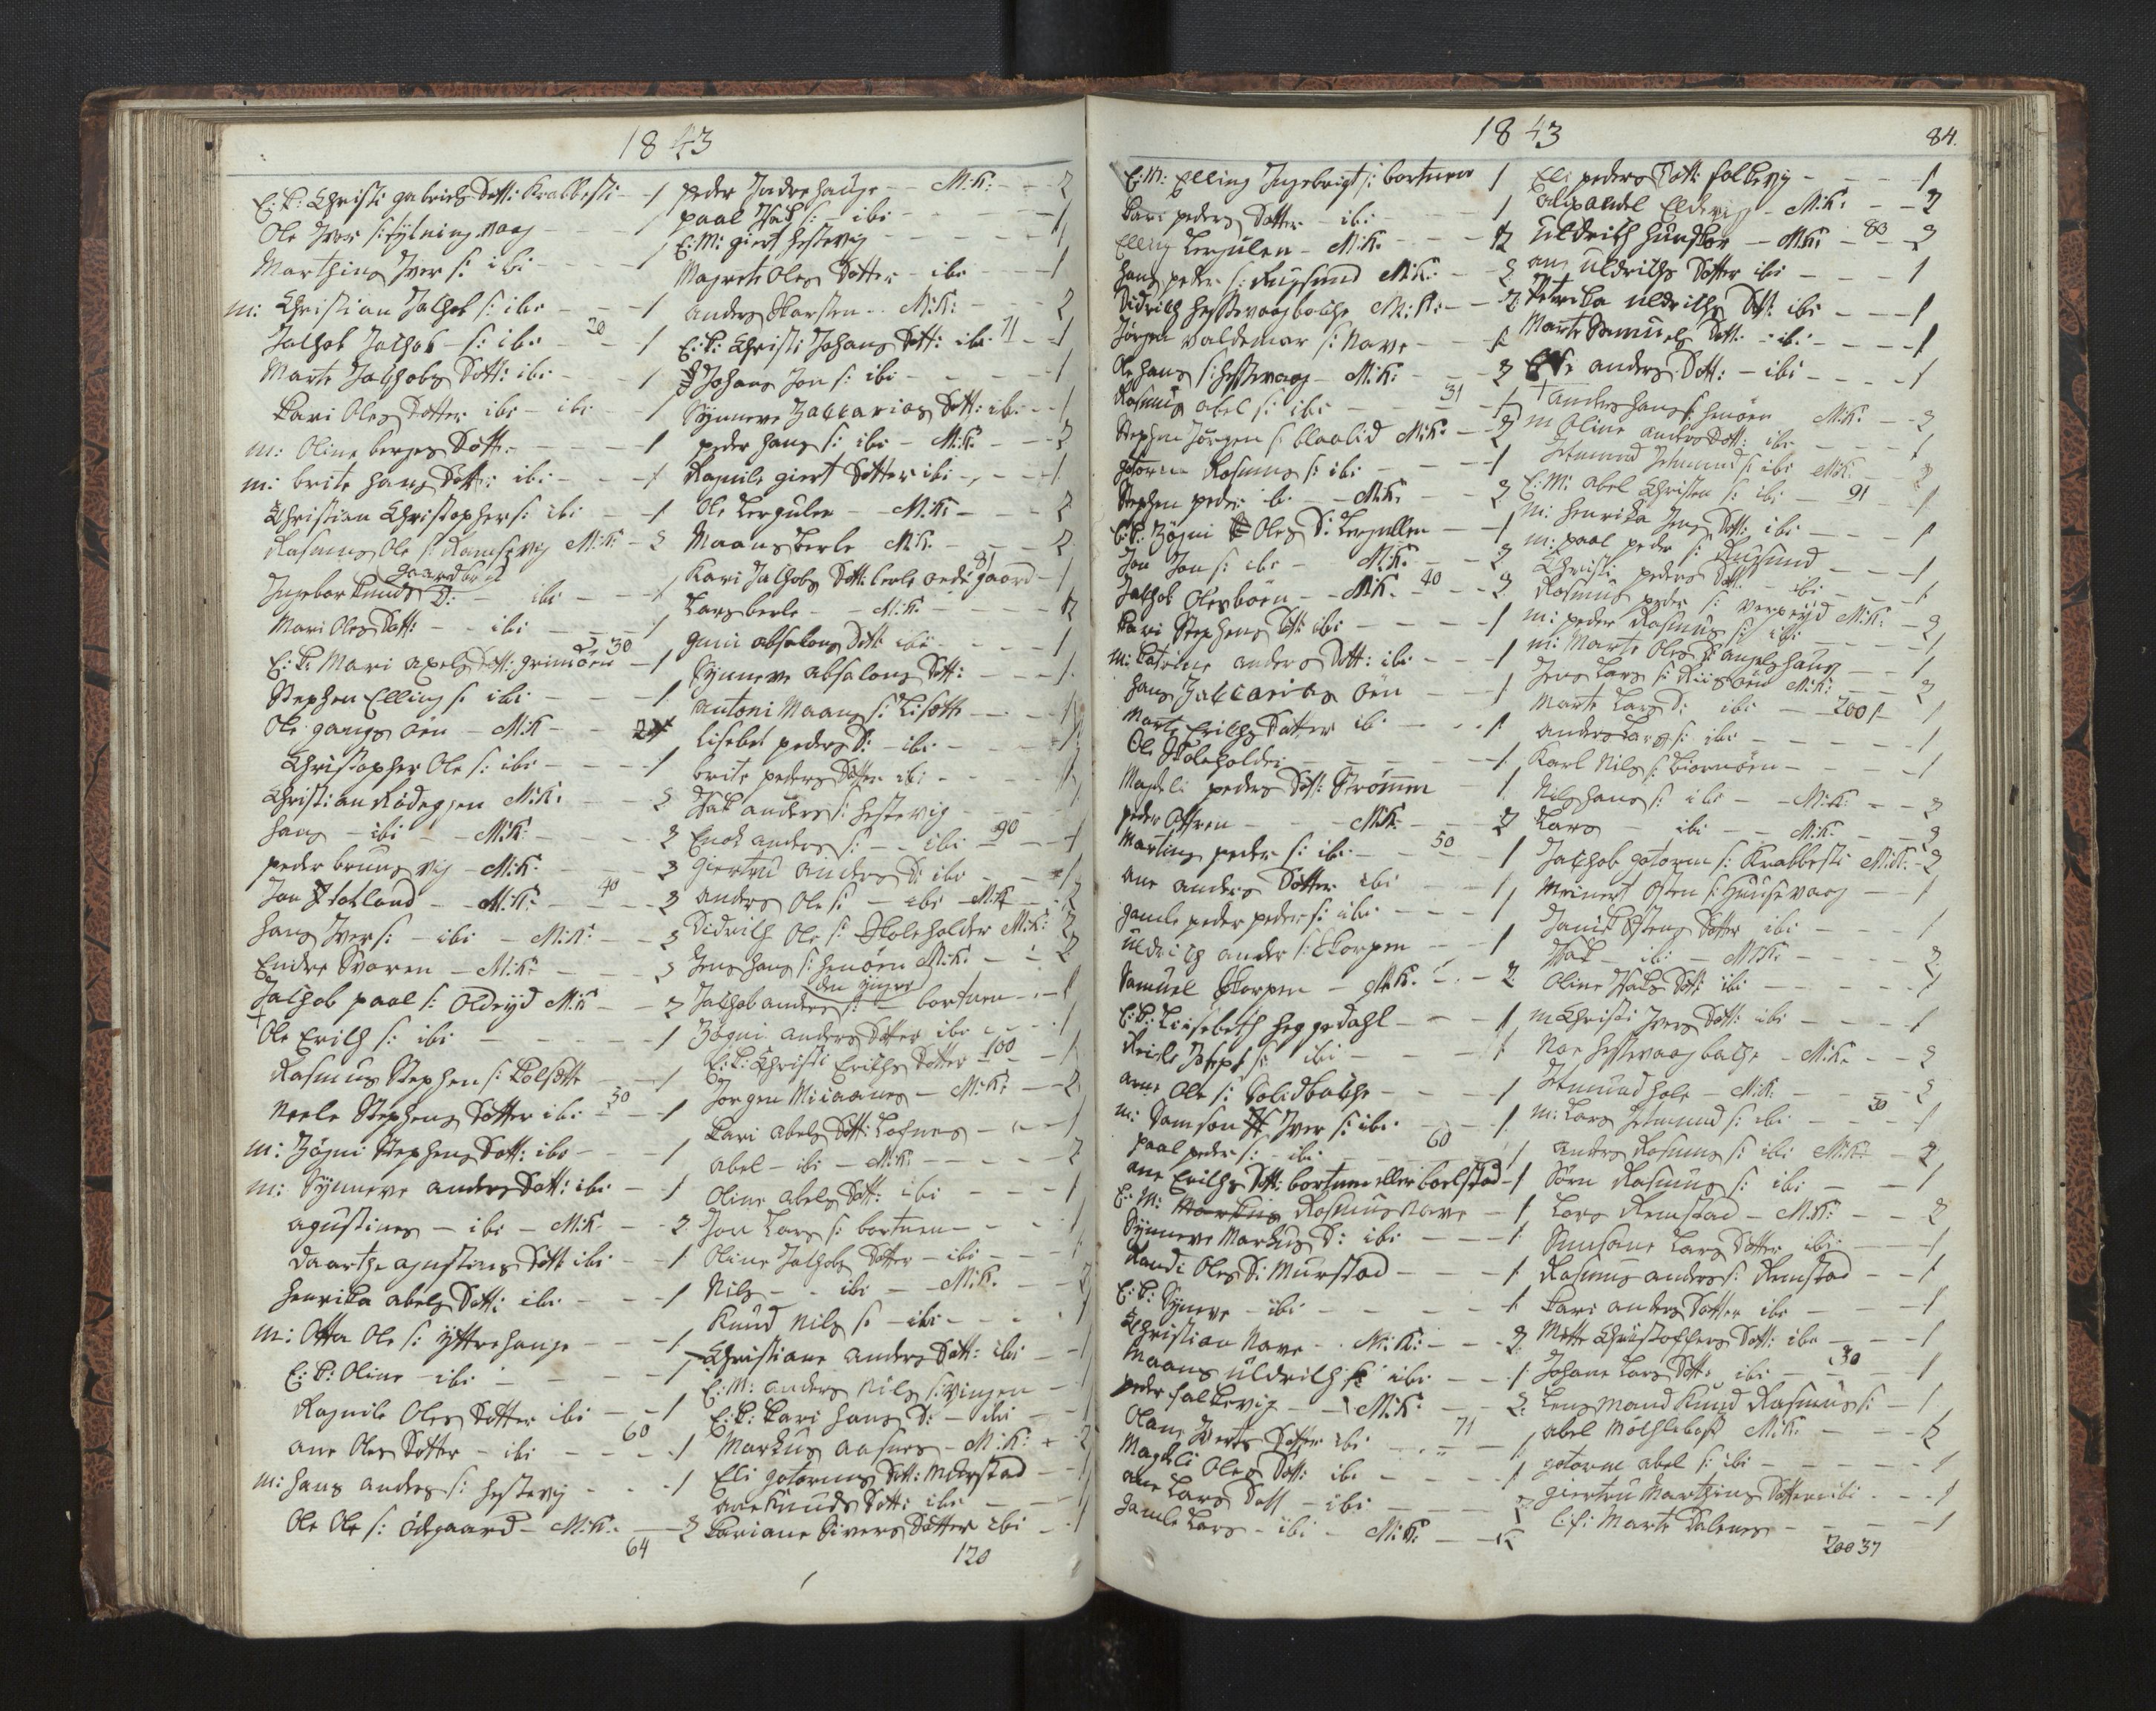 1843
E: K: Christi gabriels Dott: Krabbesti - 1
Ole Iver s:
Marthins Iver s: ibi - 1
m: Christian Jachob s: ibi - 1
Jachob Jachob s: ibi - 20 - 1
Marte Jachobs Dott: ibi - 1
Kari Oles Dotter ibi - ibi - 1
m: Oline berges Dott: - 1
m: brite hans Dott: ibi - 1
Christian Christopher s: ibi - 1
Rasmus Ole s: Ramsevig M:K: - 2
gaardbrud
Ingebor Knuds D: - ibi - 1
Mari Oles Dott: - ibi - 1
E: K: Mari Axels Dott: grimöen - 30 - 1
Stephen Elling s: ibi - 1
Ole gangsöen - M:K - 2
Christopher Ole s: ibi - 1
Christian Rödegjen M:K: - 2
hans - ibi - M:K: - 2
peder bruns vig - M:K: - 2
Jon Totland - M:K: - 40 - 2
hans Iver s: - ibi - M:K: - 2
Endre Svoren - M:K: - 2
Jachob paal s: Oldeyd M:K - 2
Ole Erich s: ibi - 1
Rasmus Stephen s: Kolsötte - 1
Neele Stephens Dotter ibi - 50 - 1
m: Zögni Stephens Dott: ibi - 1
m: Synneve anders Dott: ibi - 1
agustines - ibi - M:K: - 2
daarthe agustins Dott ibi - 1
henrika abels Dott: ibi - 1
m: Otta Ole s: yttrehauge - 1
E: K: Oline - ibi - 1
Ragnile Oles Dotter ibi - 1
ane Oles Dotter - ibi - 60 - 1
m: hans anders s: hestevig - 1
Ole Ole s: ödegaard - M:K: - 2
64
peder Indrehauge - M:K: - 2
paal Isak s: - ibi - 1
E: M: giert hestevig - 1
Magrete Oles Dotter - ibi - 1
anders Karsten - M:K: - 2
E: K: Christi Johans Dott: ibi 71 - 1
Johans Jon s: ibi - 1
Synneve Zaccarias Dott: ibi - 1
peder hans s: ibi - M:K: - 2
Ragnile giert Dotter ibi - 1
Ole Lergulen - M:K: - 2
Maans berle M:K. - 2
Kari Jachobs Dott: berle öde gaard - 81 - 1
Lars berle - M:K: - 2
guni absalons Dott: ibi - 1
Synneve absalons Dott: - 1
antoni Maans s: Lisötte - 1
Lisebet peders D: - ibi - 1
brite peders Dotter ibi - 1
Isak anders s: hestevig - 1
Enok anders s: - ibi 90 - 1
giertru anders D: ibi - 1
anders Ole s: - ibi - M:K - 2
Didrich Ole s: Skoleholder M:K: 2
Jens hans s: henöen M:K: - 2
den yngre
Jachob anders s: - bortnen - 1
Zögni anders Dotter ibi - 1
E: K: Christi Erichs Dotter 100 - 1
Jörgen Nicaanes - M:K: - 2
Kari abels Dott: Lofnes - 1
abel - ibi - M:K: - 2
Oline abels Dott: ibi - 1
Jon Lars s: bortnen - 1
Oline Jachobs Dotter - ibi - 1
Nils - ibi - M:K. - 2
Knud Nils s: - ibi - 1
Christiane anders Dott: ibi - 1
E: M: anders Nils s: vingen - 1
E: K: Kari hans D: - ibi - 1
Markus aasnes - M:K: - 2
Eli gotorms Dott: Murstad - 1
ane Knuds Dott: ibi - 1
Kariane Sivers Dotter ibi - 1
120
1843
84.
E: M: Elling Ingebrigt s: bortnen 1
Kari peders Dotter - ibi - 1
Elling Lergulen - M:K. - 2
hans peder s: Rugsund M:K: - 2
Didrich hestevaagbache M:K: - 2
Jörgen valdemar s: Nave - 1
Ole hans s: hestevaag - M:K: - 2
Rasmus abel s: ibi - 31 - 1
Stephen Jörgen s: blaalid M:K: - 2
gotorm Rasmus s: ibi - 1
Stephen peder ibi - M:K. - 2
E: K: Zögni Oles D: Lergullen - 1
Jon Jon s: ibi - M:K: - 2
Jachob Olesböen - M:K: 40 - 2
Kari Stephens Dott: ibi - 1
m: Katrine anders Dott: ibi - 1
hans Zaccarias öen - 1
Marte Erichs Dotter ibi - 1
Ole Skoleholder - 1
Magdeli peders Dott: Strömmen - 1
peder Ottren - M:K: - 2
Martins peder s: ibi - 50 - 1
ane anders Dotter ibi - 1
gamle peder peder s: ibi - 1
uldrich ander s: Skorpen - 1
Samuel Skorpen - M:K: - 2
E: K: Liisebeth heggedahl - 1
Reiele Josept s: ibi - 1
arne Ole s: Solidbakche - 1
m: Samson Iver s: ibi - 1
paal peder s: - ibi - 60 - 1
ane Erichs Dott: bortnen eller boelstad - 1
E: M: Rasmus Nave - 1
Synneve Markus D: ibi - 1
Randi Oles D: Murstad - 1
E: K: Synneve - ibi - 1
Christian Nave - M:K: - 2
Maans uldrich s: ibi - 1
peder falkevig - M:K: - 2
Olane Iverts Dotter ibi - 71 - 1
Magdeli Oles Dott: ibi - 1
ane Lars Dott - ibi - 1
gamle Lars - ibi - M:K:
Eli peders Dott: falkevig - 1
Eldevig - M:K: - 2
Uldrich hundskor - M:K: - 80 - 2
ane uldrichs Dotter ibi - 1
Petrika uldrichs Dott: ibi - 1
Marte Samuels Dott: ibi - 1
anders Dott: - ibi - 1
anders hans s: henöen M:K: - 2
m Oline anders Dott: ibi - 1
Idmund Idmund s: ibi M:K - 2
E: M: abel Christen s: ibi - 91 - 1
m: henrika Jens Dott: ibi - 1
m: paal peder s: Rugsund - 1
Christi peders Dott: ibi - 1
Rasmus peder s: verpeyd M:K: - 2
m: peder Rasmus s: ibi - 1
m: Marte Oles D: angelshaug - 1
Jens Lars s: Riisöen M:K: - 2
Marte Lars D: ibi - 200 1
anders Lars s: ibi - 1
Karl Nils s: biörnöen - 1
Nils hans s: ibi - M:K: - 2
Lars - ibi - M:K: - 2
Jachob gotorm s: Krabbesti M:K: - 2
Meinert Osten s: Husevaag - 1
Janike Ostens Dotter ibi - 1
Isak - ibi - M:K: - 2
Oline Isaks Dott: ibi - 1
m Christi Ivers Dott: ibi - 1
Noe hestvaagbakche - M:K: - 2
Idmund hole - M:K: - 2
m: Lars Idmund s: ibi - 20 - 1
anders Rasmus s: ibi M:K: - 2
Sörn Rasmus s: ibi - 1
Lars Remstad - M:K: - 2
Susane Lars Dotter ibi - 1
Rasmus anders s: Remstad - 1
Kari anders Dotter ibi - 1
Mette Christoffers Dott: ibi - 1
Johane Lars Dott: ibi - 30 - 1
Lensmand Knud Rasmus s: - 1
abel M:K: - 2
gotorm abel s: ibi - 1
giertru Marthins Dotter ibi - 1
Marte Dalenes - 1
200 37